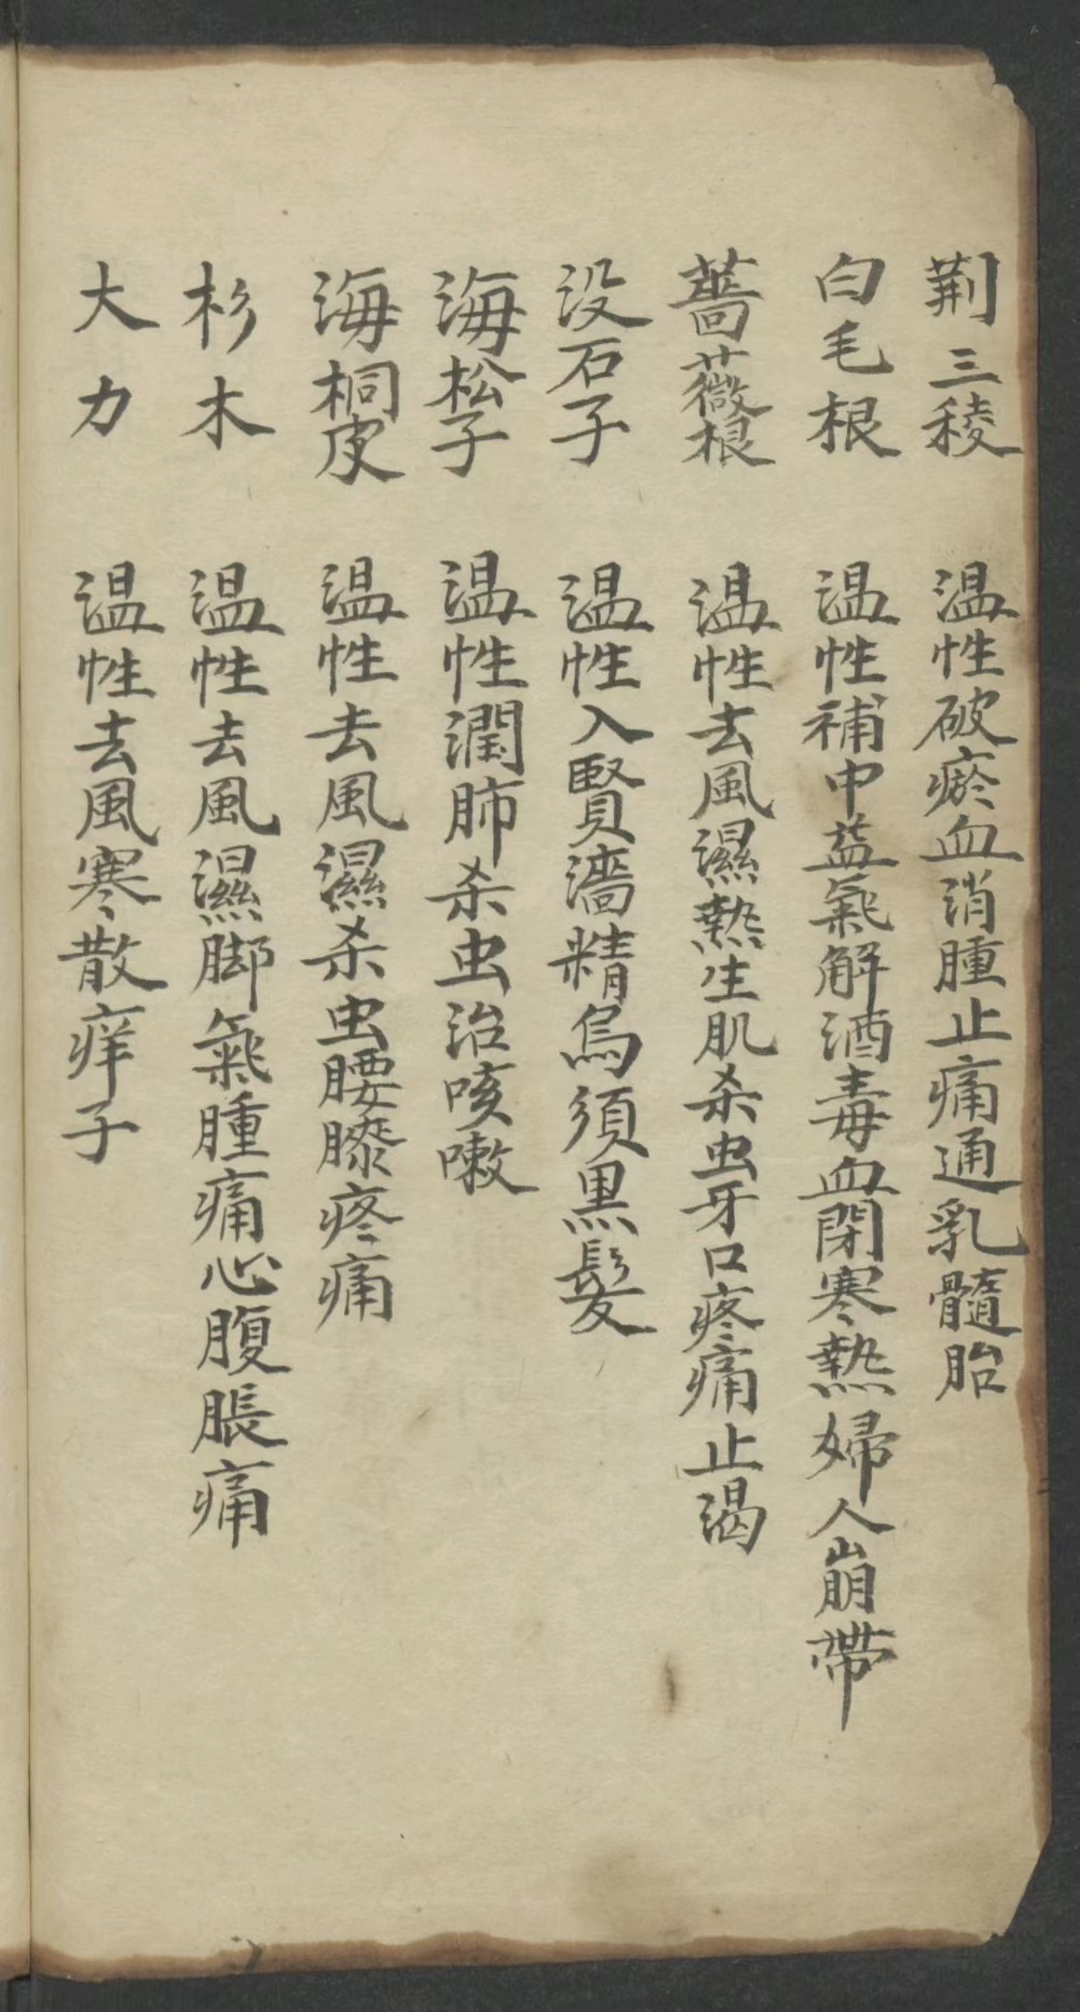 荆三稜 温性破瘀血消腫止痛通乳髓胎
白毛根 温性補中益氣解酒毒血閉寒熱婦人崩帶
薔薇根 温性去風濕熱生肌杀虫牙口疼痛止渴
没石子 温性入賢濇精烏須黒髮
海松子 温性潤肺杀虫治咳嗽
海桐皮 温性去風濕杀虫腰膝疼痛
杉木 温性去風濕脚氣腫痛心腹脹痛
大力 温性去風寒散痒子